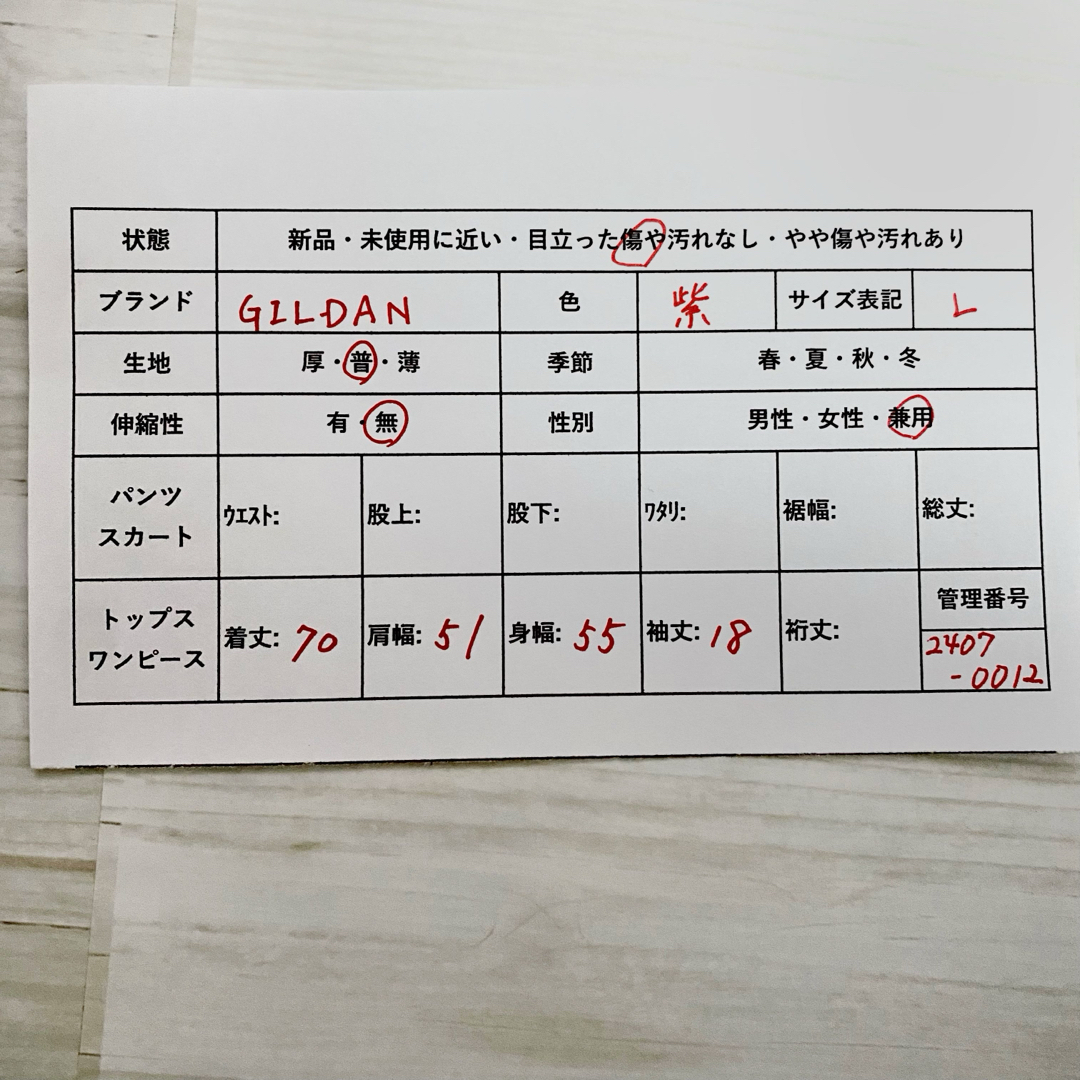 状態 新品・未使用に近い・目立った傷や汚れなし・やや傷や汚れあり
ブランド GILDAN 色 紫 サイズ表記 L
生地 厚・普・薄 季節 春・夏・秋・冬
伸縮性 有・無 性別 男性・女性・兼用
パンツ
スカート
ｳｴｽﾄ: 股上: 股下: ﾜﾀﾘ: 裾幅: 総丈:
トップス
ワンピース
着丈: 70 肩幅: 51 身幅: 55 袖丈: 18 裄丈:
管理番号
2407
-0012